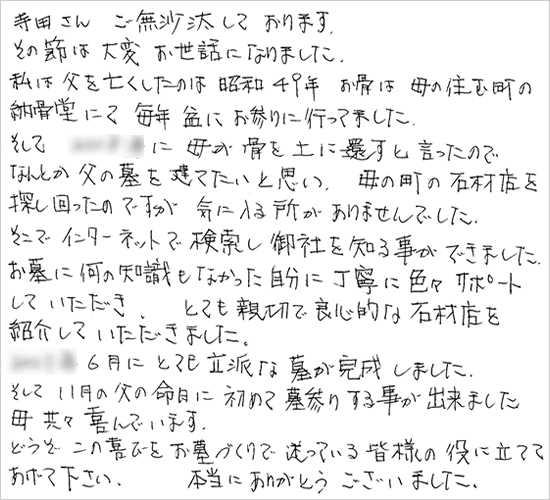 寺田さん ご無沙汰しております。
その節は大変お世話になりました。
私は父を亡くしたのは昭和49年 お骨は母の住む町の
納骨堂にて毎年盆にお参りに行ってました。
そして に母が骨を土に還すと言ったので
なんとか父の墓を建てたいと思い、母の町の石材店を
探し回ったのですが 気に入る所がありませんでした。
そこでインターネットで検索し御社を知る事ができました。
お墓に何の知識もなかった自分に丁寧に色々サポート
していただき、 とても親切で良心的な石材店を
紹介していただきました。
6月にとても立派な墓が完成しました。
そして11月の父の命日に初めて墓参りする事が出来ました
母共々喜んでいます。
どうぞこの喜びをお墓づくりで迷っている皆様の役に立てて
あげて下さい。 本当にありがとうございました。